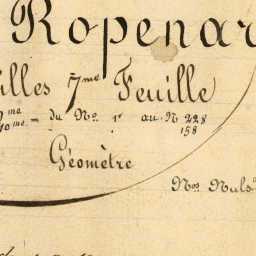 Ropenar
illes 7me Feuille
2me
10me = du No. 1r au N 228
158
Géomètre
Nos Nuls